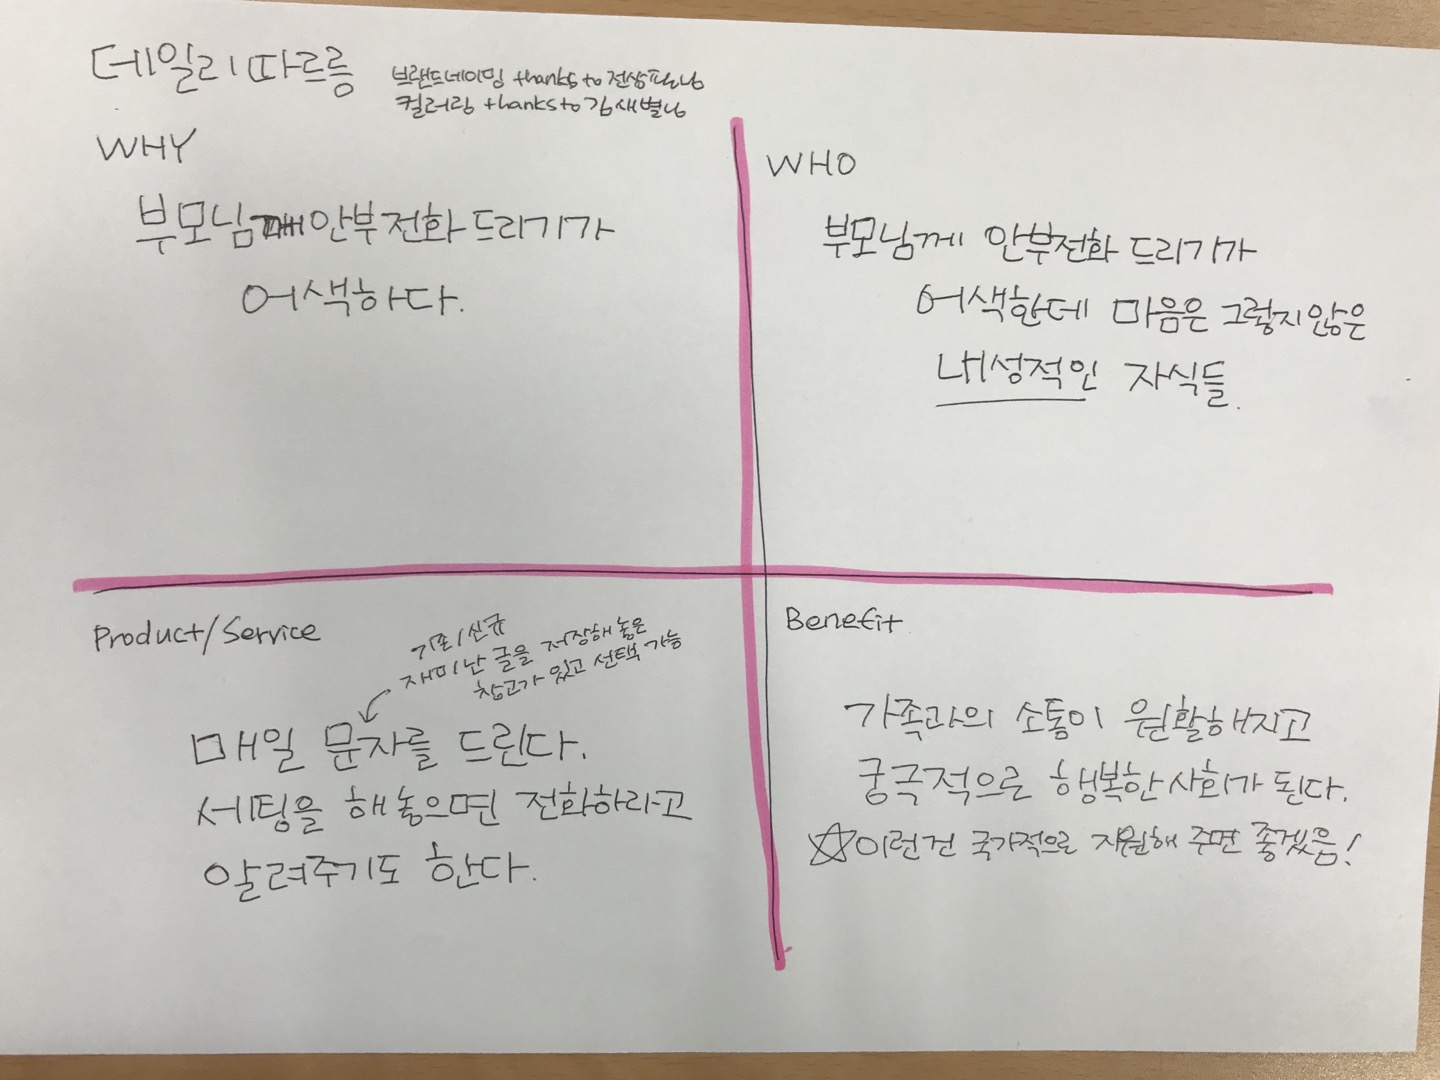 데일리따르릉
브랜드네이밍 thanks to 전상표님
컬러링 thanks to 김새별님
WHY
부모님께 안부전화 드리기가
어색하다.
WHO
부모님께 안부전화 드리기가
어색한데 마음은 그렇지않은
내성적인 자식들.
Product/Service
기존/신규
재미난 글을 저장해 놓은
창고가 있고 선택 가능
매일 문자를 드린다.
세팅을 해놓으면 전화하라고
알려주기도 한다.
Benefit
가족과의 소통이 원활해지고
궁극적으로 행복한 사회가 된다.
☆이런건 국가적으로 지원해 주면 좋겠음!